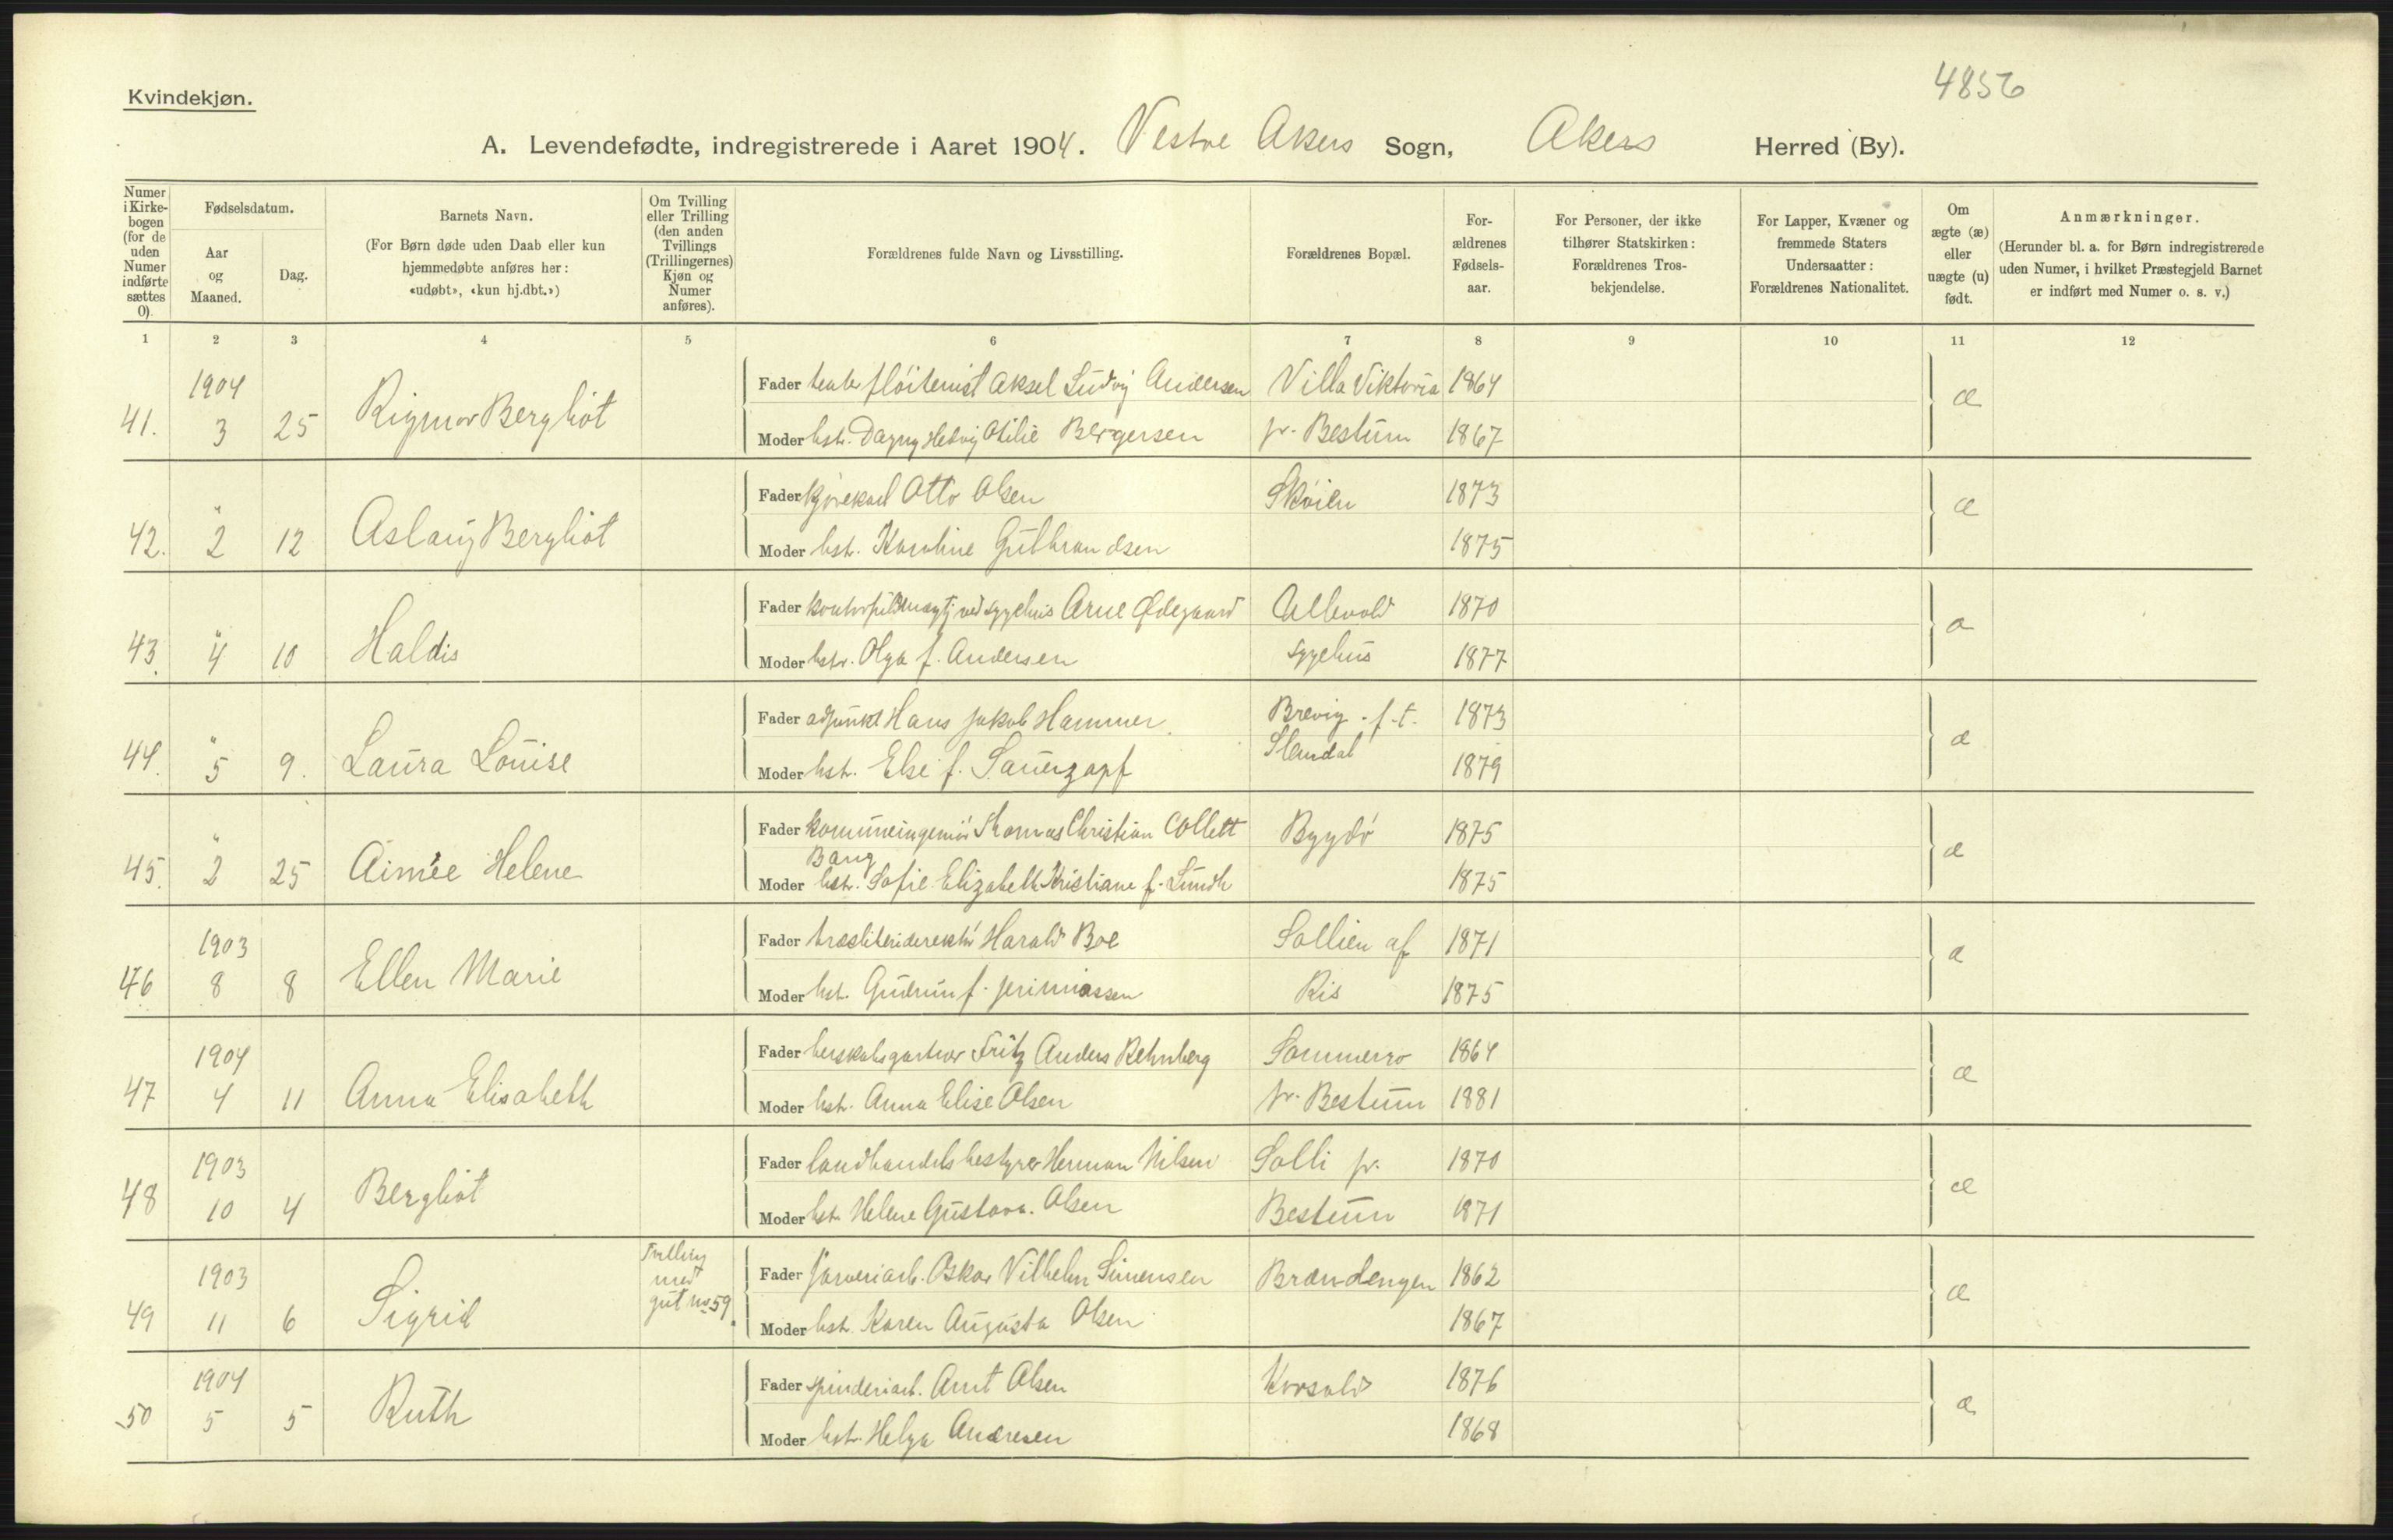 4856
Kvindekjøn.
A. Levendefødte, indregistrerede i Aaret 1904. Vestre Akers Sogn, Akers Herred (By).
Numer i Kirkebogen (for de uden Numer indførte sættes 0).
Fødselsdatum.
Aar og Maaned.
Dag.
Barnets Navn.
(For Børn døde uden Daab eller kun hjemmedøbte anføres her: «udøbt», «kun hj.dbt.»)
Om Tvilling eller Trilling (den anden Tvillings (Trillingernes) Kjøn og Numer anføres).
Forældrenes fulde Navn og Livsstilling.
Forældrenes Bopæl.
Forældrenes Fødselsaar.
For Personer, der ikke tilhører Statskirken: Forældrenes Trosbekjendelse.
For Lapper, Kvæner og fremmede Staters Undersaatter: Forældrenes Nationalitet.
Om ægte (æ) eller uægte (u) født.
Anmærkninger.
(Herunder bl. a. for Børn indregistrerede uden Numer, i hvilket Præstegjeld Barnet er indført med Numer o. s. v.)
1 2 3 4 5 6 7 8 9 10 11 12
1904 Fader fløitenist Aksel Ludvig Andersen Villa Viktoria 1864 æ
41. 3 25 Rigmor Bergliot Moder hstr. Dagny Hedvig Otilie Bergersen pr. Bestum 1867
" Fader kjørekarl Otto Olsen Skøien 1873 æ
42. 2 12 Aslaug Bergliot Moder hstr. Karoline Gulbrandsen 1875
" Fader kontorfuldmægtj ved sygehus Arne Ødegaard Ullevold 1870 æ
43. 4 10 Haldis Moder hstr. Olga f. Andersen sygehus 1877
" Fader adjunkt Hans Jakob Hammer Brevig f. t. 1873 æ
44. 5 9. Laura Louise Moder hstr. Else f. Sauerzapf Slemdal 1879
" Fader kommuneingeniør Thomas Christian Collett Bygdø 1875 æ
Bang
45. 2 25 Aimée Helene Moder hstr. Sofie Elizabeth Kristiane f. Lundh 1875
1903 Fader træsliteridirektør Harald Boe Sollien af 1871 æ
46 8 8 Ellen Marie Moder hst. Gudrun f. Jerimiassen Ris 1875
1904 Fader herskabsgartner Fritz Anders Rehnberg Sommerro 1864 æ
47 4 11 Anna Elisabeth Moder hstr. Anna Elise Olsen pr. Bestum 1881
1903 Fader landhandelsbestyrer Herman Nilsen Solli pr. 1870 æ
48 10 4 Bergliot Moder hst. Helene Gustava. Olsen Bestum 1871
1903 Tvilling med gut no 59. Fader farveriarb. Oskar Vilhelm Simensen Brændengen 1862 æ
49 11 6 Sigrid Moder hst. Karen Augusta Olsen 1867
1904 Fader spinderiarb. Amt Olsen Korsvold 1876 æ
50 5 5 Ruth Moder hstr. Helga Andresen 1868